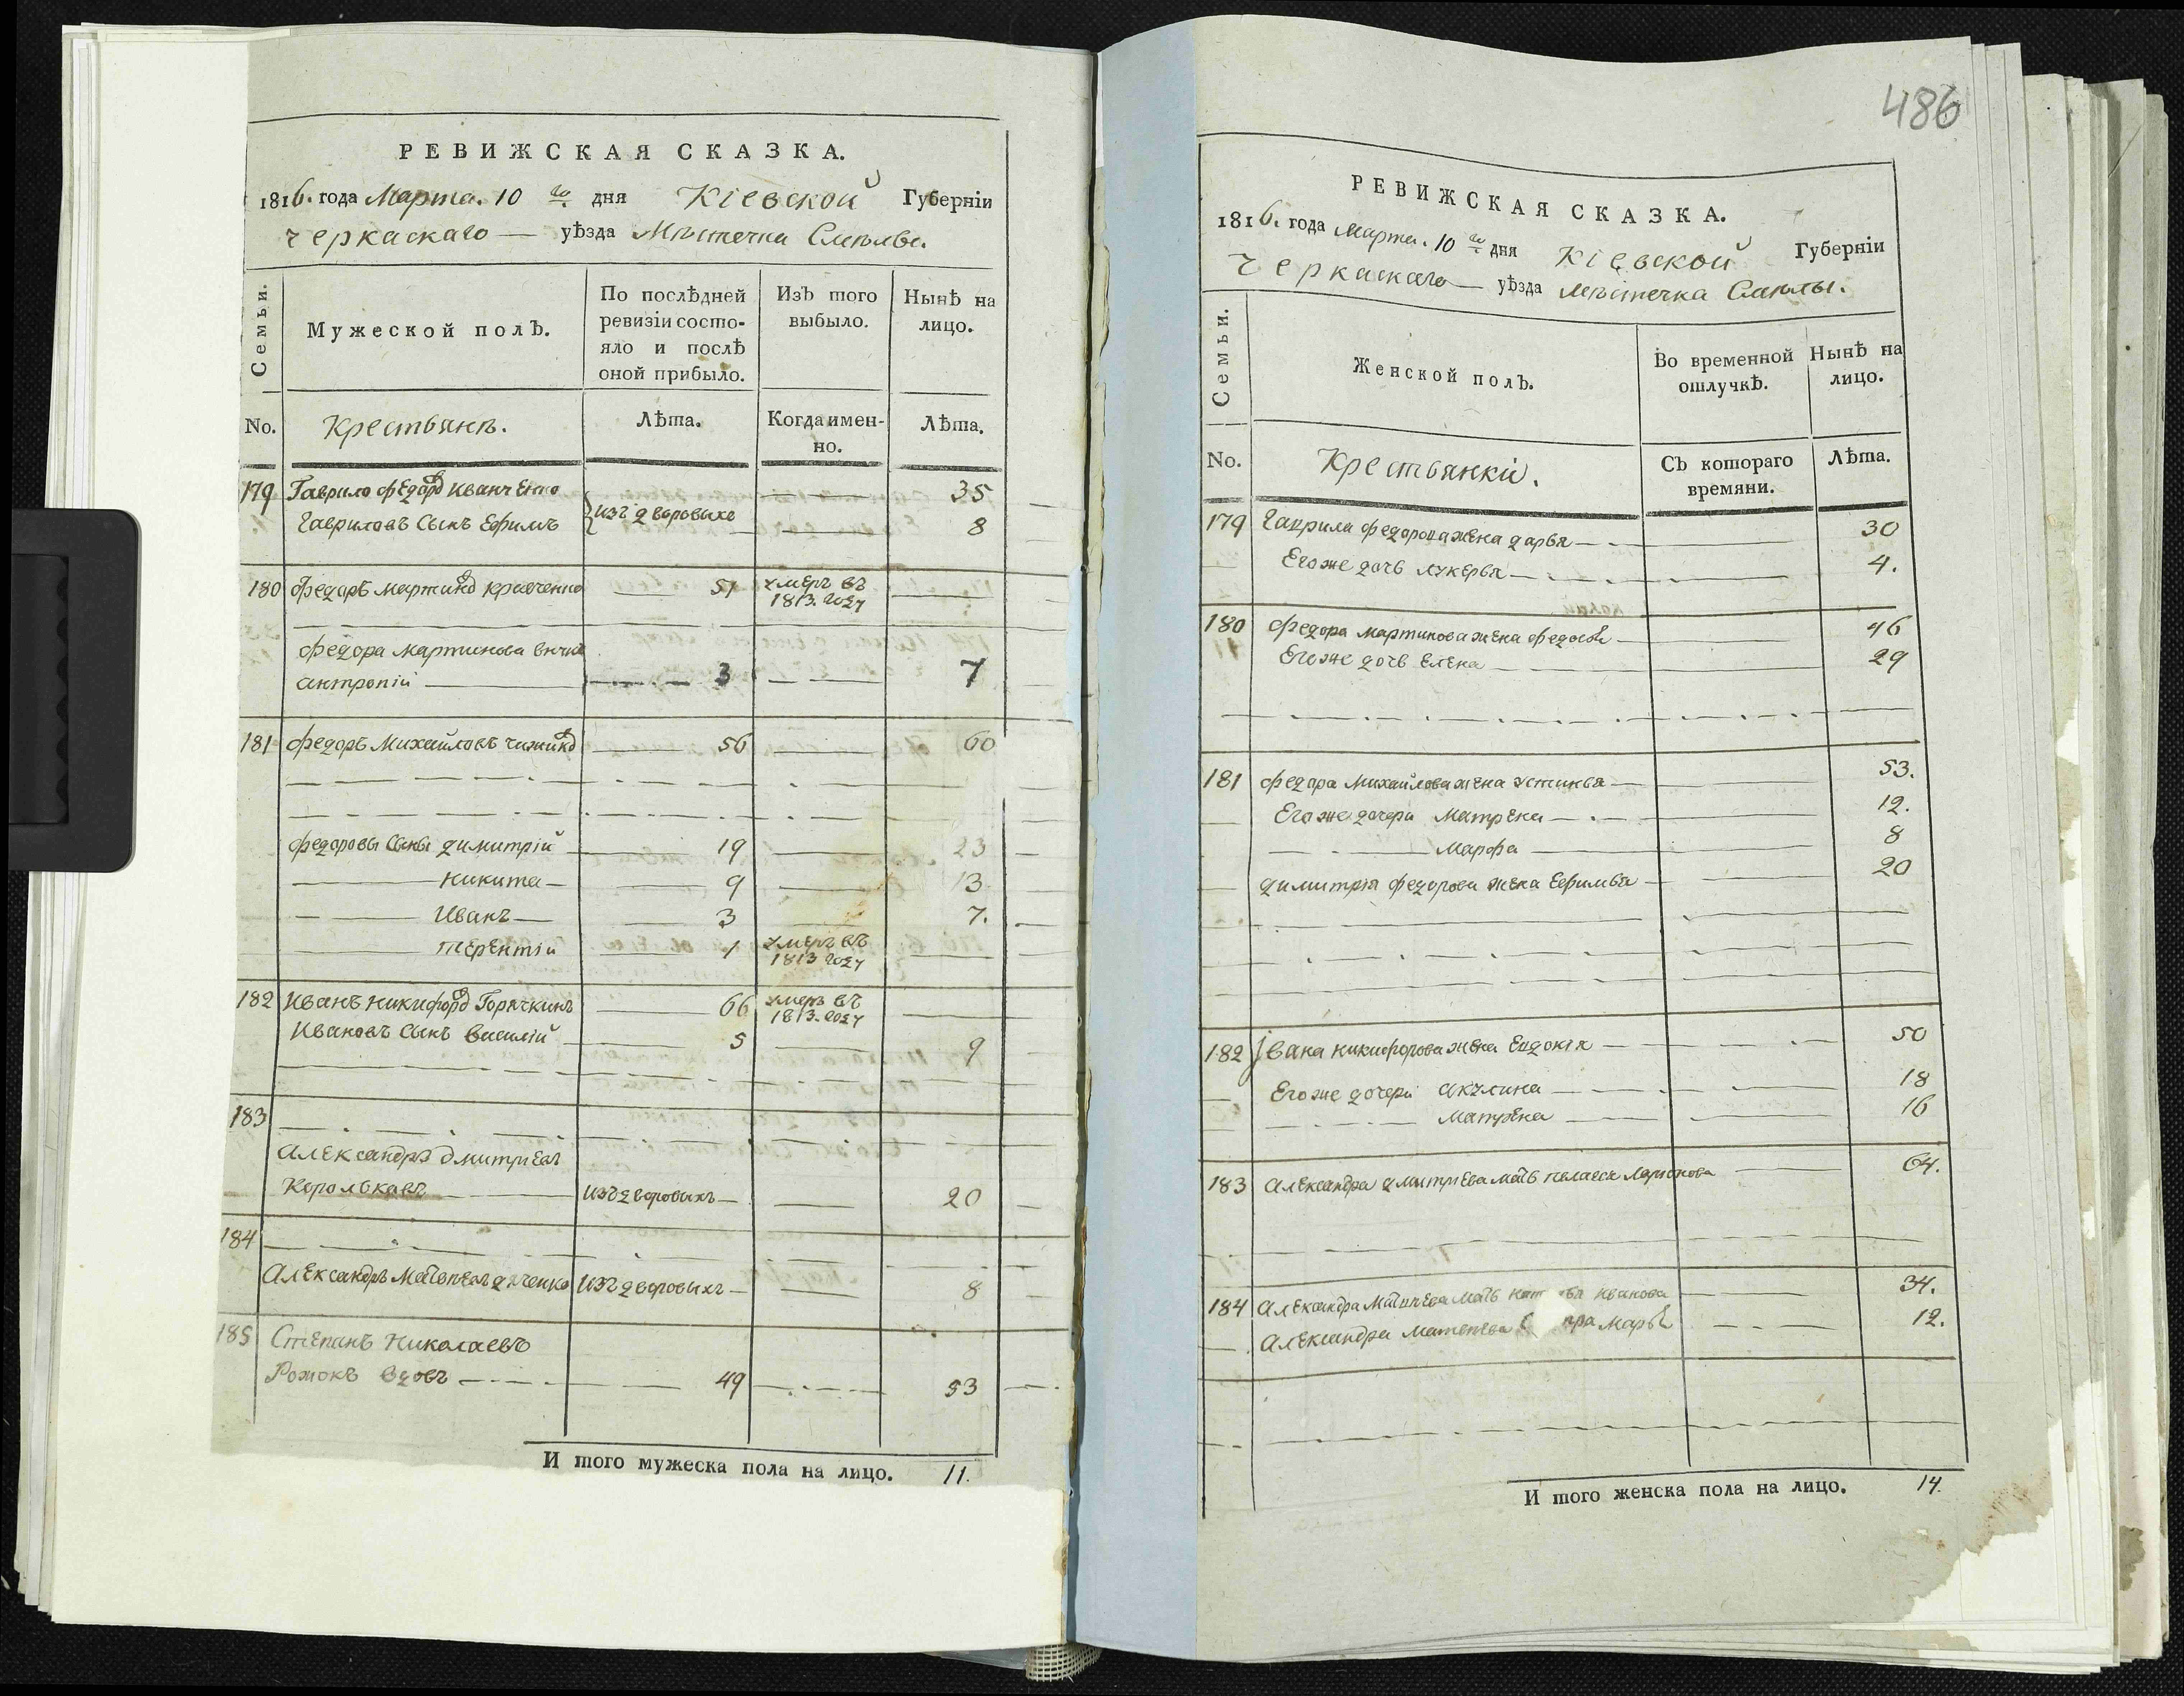 РЕВИЖСКАЯ СКАЗКА.
1816. года Марта. 10 го дня Кіевской Губерніи
Черкаскаго — уѣзда Мѣстечка Смѣлы.
Семьи.
Мужеской полЪ.
По послѣдней ревизіи состо-
яло и послѣ оной прибыло.
ИзЪ того выбыло.
Нынѣ на лицо.
No.
Крестьянъ.
Лѣта.
Когда имен-
но.
Лѣта.
179 Гаврило Федоровъ Иванченко 35
Гавриловъ Сынъ Ефимъ изъ дворовыхъ 8
180 Федоръ Мартиновъ Кравченко 51 умеръ въ 1813. году
Федора Мартинова внукъ
антропій 3 7
181 Федоръ Михайловъ Чижиковъ 56 60
Федоровы Сыны димитрій 19 23
никита 9 13
Иванъ 3 7.
терентій 1 умеръ въ 1813 году
182 Иванъ Никифоровъ Горячкинъ 66 умеръ въ 1813. году
Ивановъ Сынъ василій 5 9
183
Александръ дмитріевъ
Корольковъ изъ дворовыхъ 20
184
Александръ Матвѣевъ дяченко изъ дворовыхъ 8
185 Степанъ Николаевъ
Рожокъ вдовъ 49 53
И того мужеска пола на лицо. 11.
486
РЕВИЖСКАЯ СКАЗКА.
1816. года Марта. 10 го дня Кіевской Губерніи
Черкаскаго — уѣзда мѣстечка Смѣлы.
Семьи.
Женской полЪ.
Во временной отлучкѣ.
Нынѣ на лицо.
No.
Крестьянки.
СЪ котораго времяни.
Лѣта.
179 Гаврила Федорова жена дарья 30
Его же дочь лукерья 4.
180 Федора Мартинова жена федосья 46
Его же дочь Елена 29
181 Федора Михайлова жена устинья 53.
Его же дочери Матрена 12.
Марфа 8
димитрія федорова жена Ефимья 20
182 Ивана никифорова жена Евдокія 50
Его же дочери акулина 18
матрена 16
183 Александра дмитріева мать пелагея Ларіонова 64.
184 Александра Матвѣева мать Иванова 34.
Александра Матвѣева Марья 12.
И того женска пола на лицо. 14.